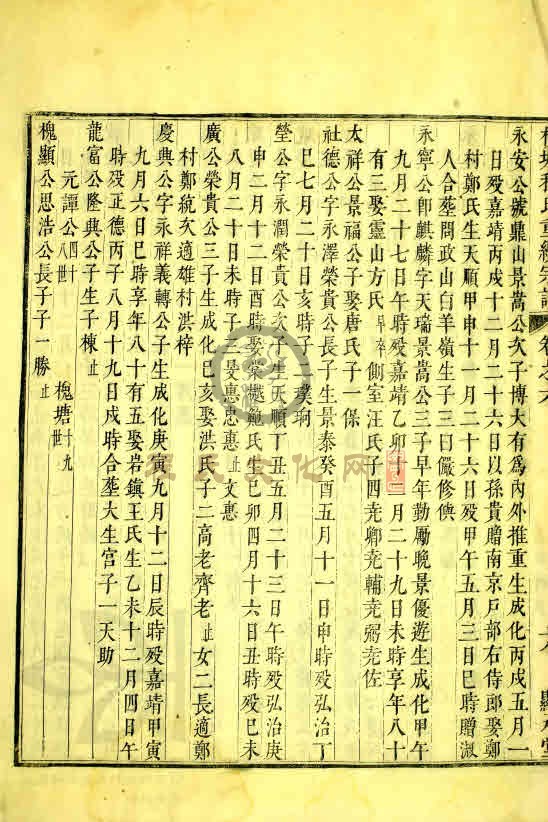 永安公號鼎山景嵩公次子博大有爲內外推重生成化丙戌五月一
日歿嘉靖丙戌十二月二十六日以孫貴贈南京戶部右侍郎娶鄭
村鄭氏生天順甲申十一月二十六日歿甲午五月三日巳時贈淑
人合塟問政山白羊嶺生子三曰儼修傳
永寧公卽麒麟字天瑞景嵩公三子早年勤勵晚景優遊生成化甲午
九月二十七日午時歿嘉靖乙卯十二月二十九日未時享年八十
有三娶靈山方氏早卒側室汪氏子四尭卿尭輔尭弼尭佐
太祥公景福公子娶唐氏子一保
社德公字永澤榮貴公長子生景泰癸酉五月十一日申時歿弘治丁
巳七月二十日亥時子二璞珦
瑩公字永潤榮貴公次子生天順丁丑五月二十三日午時歿弘治庚
申二月十二日酉時娶棠樾鮑氏生己卯四月十六日丑時歿己未
八月二十日未時子三旻惠忠惠止文惠
廣公榮貴公三子生成化己亥娶洪氏子二高老齊老止女二長適鄭
村鄭統次適雄村洪梓
慶典公字永祥義轉公子生成化庚寅九月十二日辰時歿嘉靖甲寅
九月六日巳時享年八十有五娶岩鎮王氏生乙未十二月四日午
時歿正德丙子八月十九日戌時合塟大生宫子一天助
龍富公隆典公子生子棟止
元譚公四十八世 槐塘十九世
槐顯公思浩公長子子一勝止